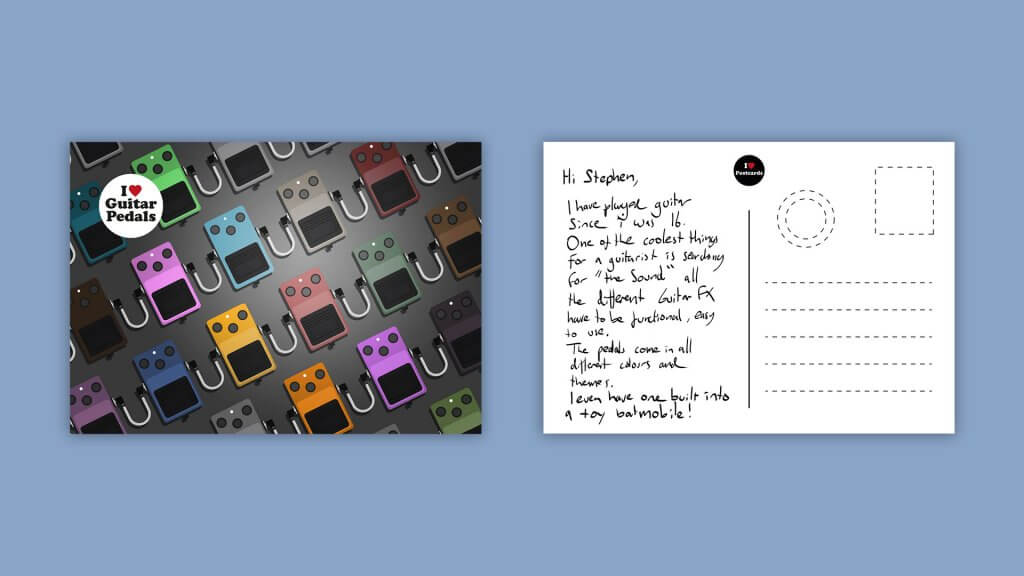 I ❤ Guitar
Pedals
I ❤
Postcards
Hi Stephen,
I have played guitar
Since i was 16.
One of the coolest things
For a guitarist is searching
For "the Sound" all
the different Guitar FX
have to be functional, easy
to use.
The pedals come in all
different colours and
themes.
I even have one built into
a toy batmobile!